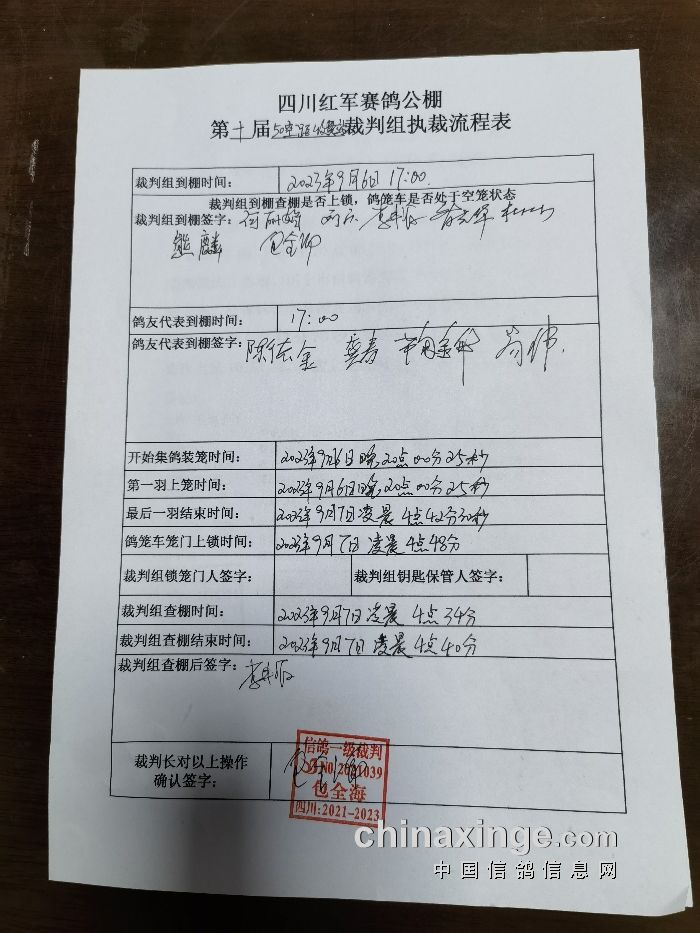 四川红军赛鸽公棚
第十届裁判组执裁流程表
裁判组到棚时间： 2023年9月6日 17:00.
裁判组到棚查棚是否上锁，鸽笼车是否处于空笼状态
裁判组到棚签字：
熊麟
鸽友代表到棚时间： 17:00
鸽友代表到棚签字：
开始集鸽装笼时间： 2023年9月6日晚20点00分25秒
第一羽上笼时间： 2023年9月6日晚20点00分25秒
最后一羽结束时间： 2023年9月7日凌晨4点42分30秒
鸽笼车笼门上锁时间： 2023年9月7日凌晨4点48分
裁判组锁笼门人签字： 裁判组钥匙保管人签字：
裁判组查棚时间： 2023年9月7日凌晨4点34分
裁判组查棚结束时间： 2023年9月7日凌晨4点40分
裁判组查棚后签字：
裁判长对以上操作
确认签字：
信鸽一级裁判
包全海
四川:2021-2023
chinaxinge.com
中国信鸽信息网